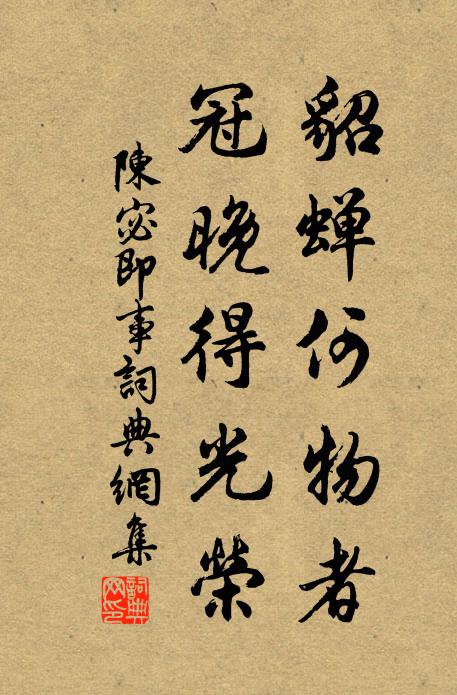 貂蟬何物者
冠晚得光榮
陳宓即事詞典網集
詞典網印